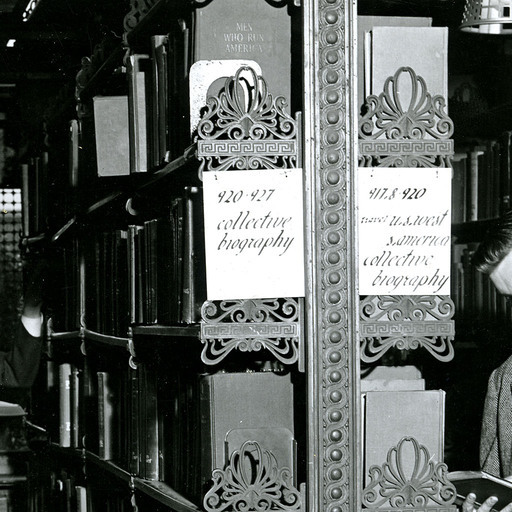 MEN
WHO RUN
AMERICA
920-927
collective
biography
917.8-920
travel u.s.west
s.america
collective
biography